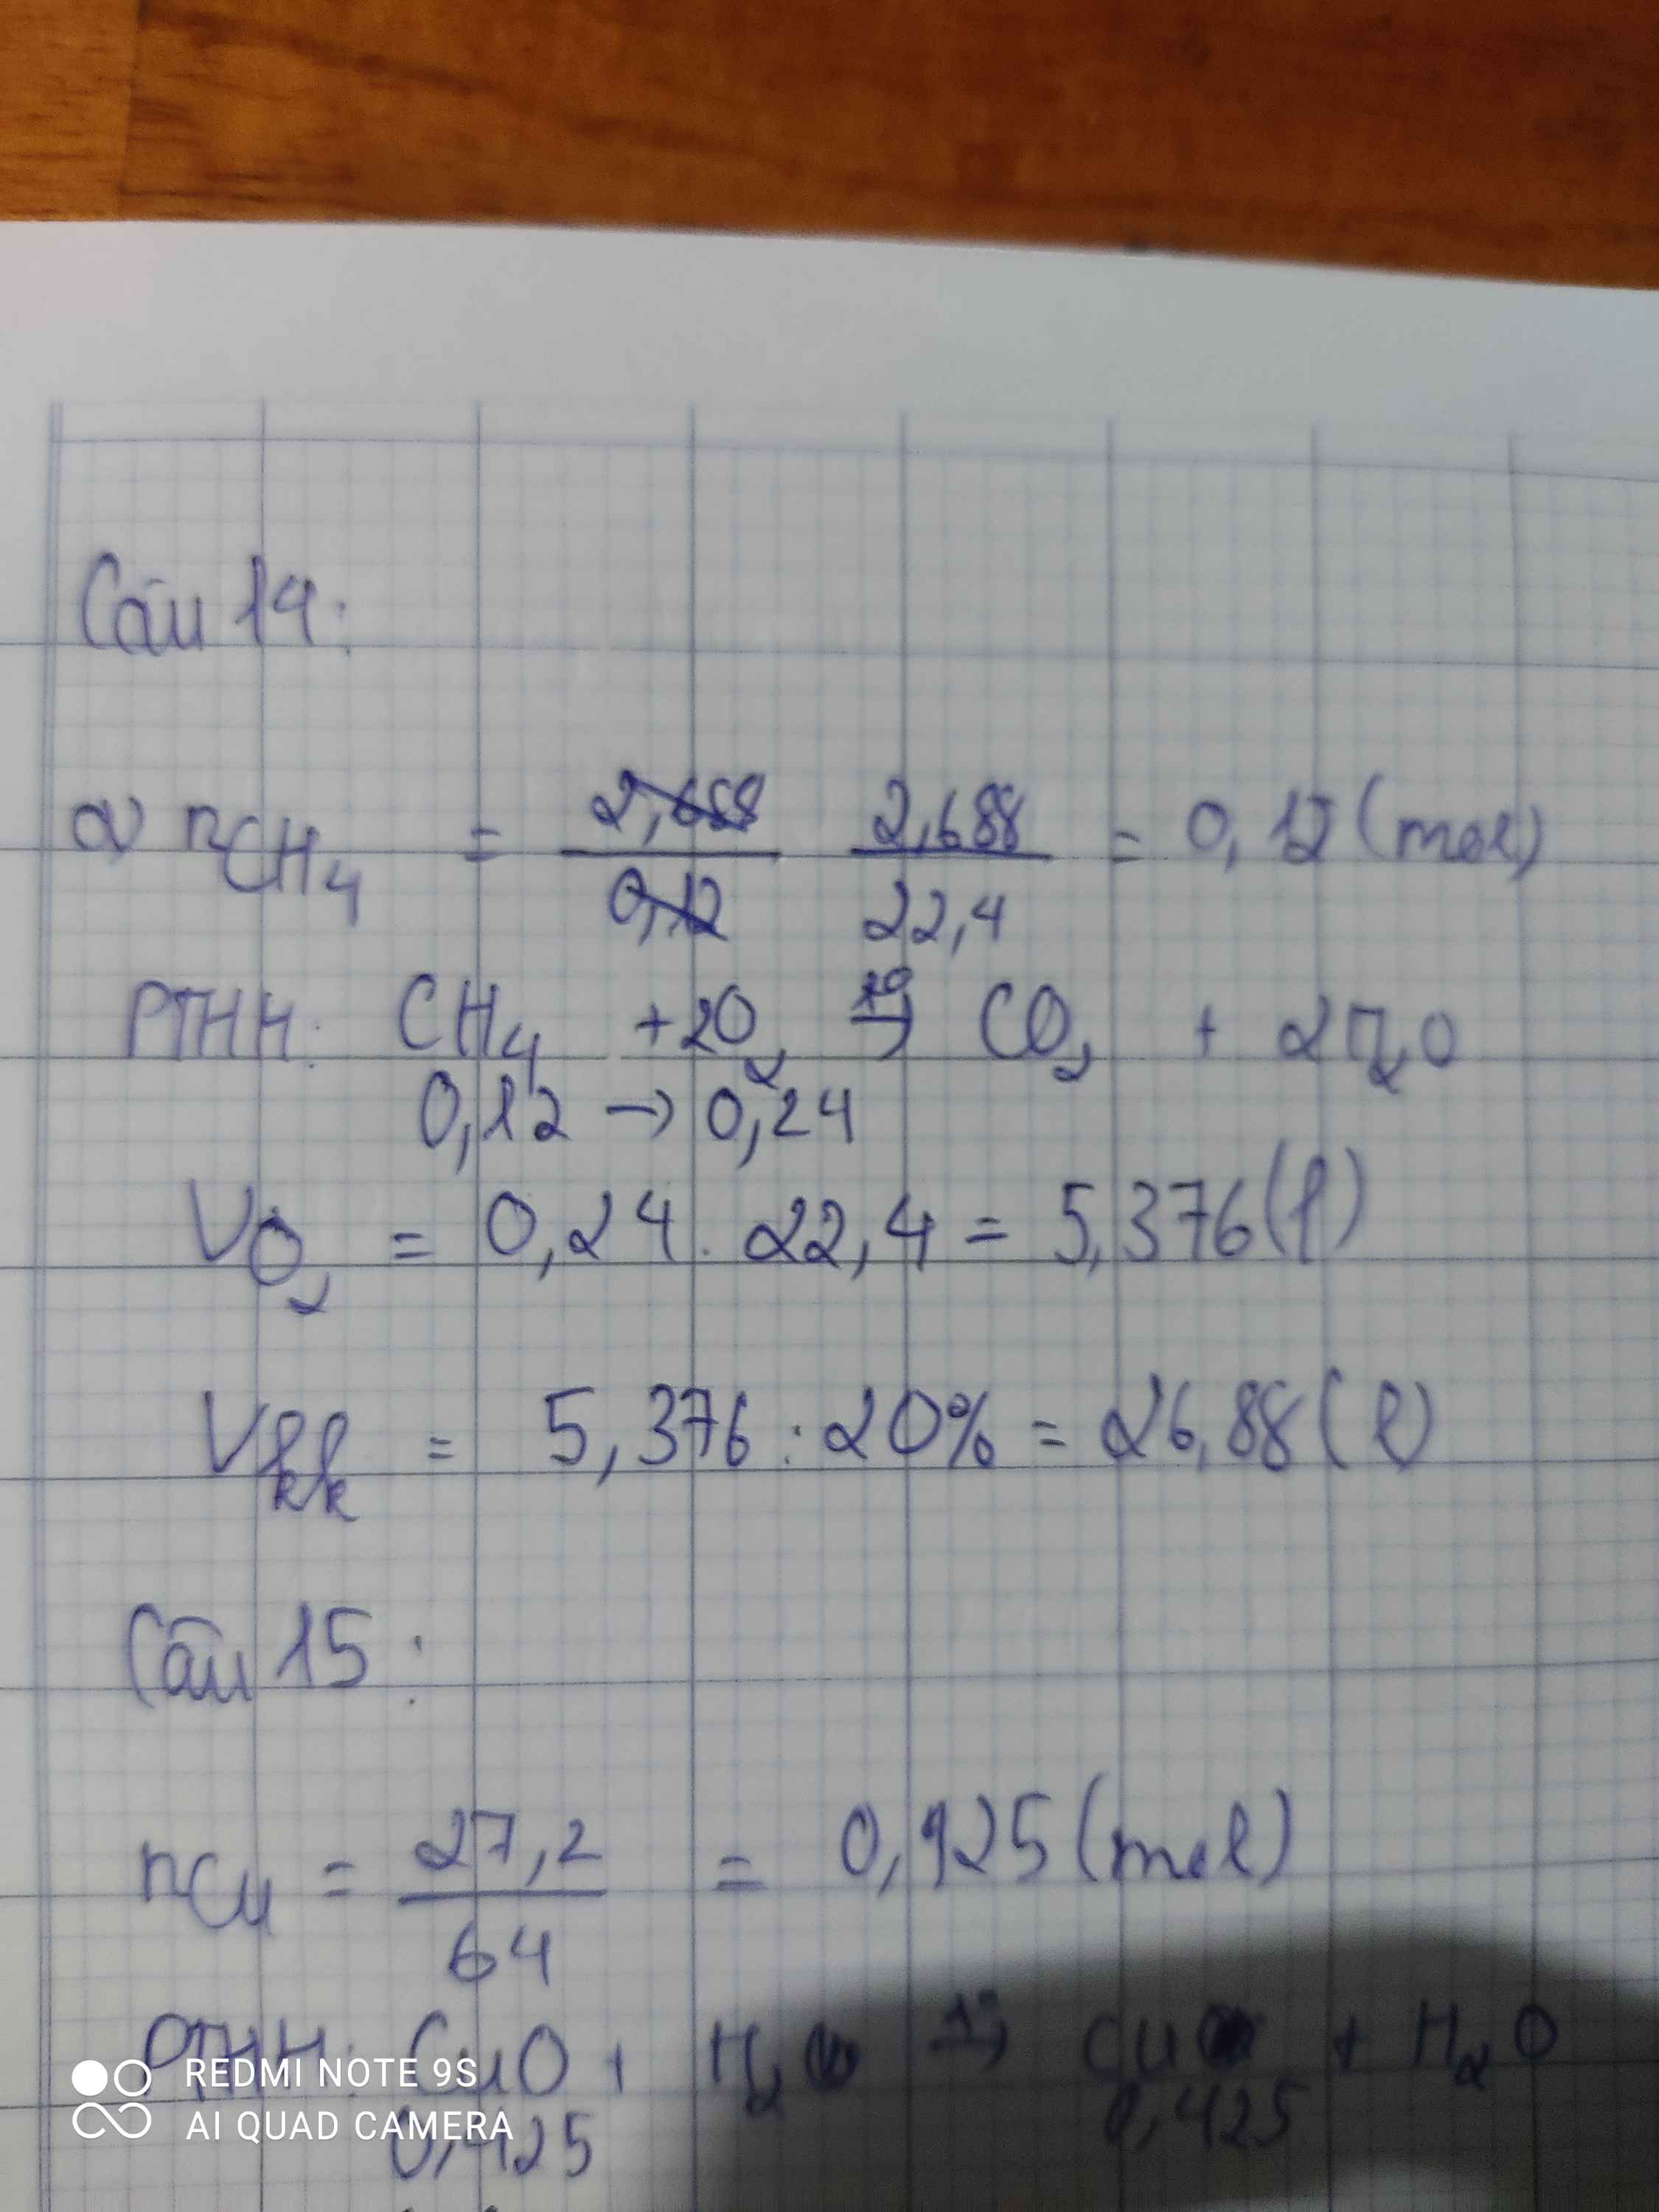 Câu 14:
a) nCH₄ = 2,688/0,12 2,688/22,4 = 0,12 (mol)
PTHH: CH₄ + 2O₂ t°→ CO₂ + 2H₂O
0,12 → 0,24
VO₂ = 0,24 . 22,4 = 5,376 (l)
Vkk = 5,376 : 20% = 26,88 (l)
Câu 15:
nCu = 27,2/64 = 0,425 (mol)
PTHH: CuO + H₂ t°→ Cu + H₂O
0,425 0,425
REDMI NOTE 9S
AI QUAD CAMERA